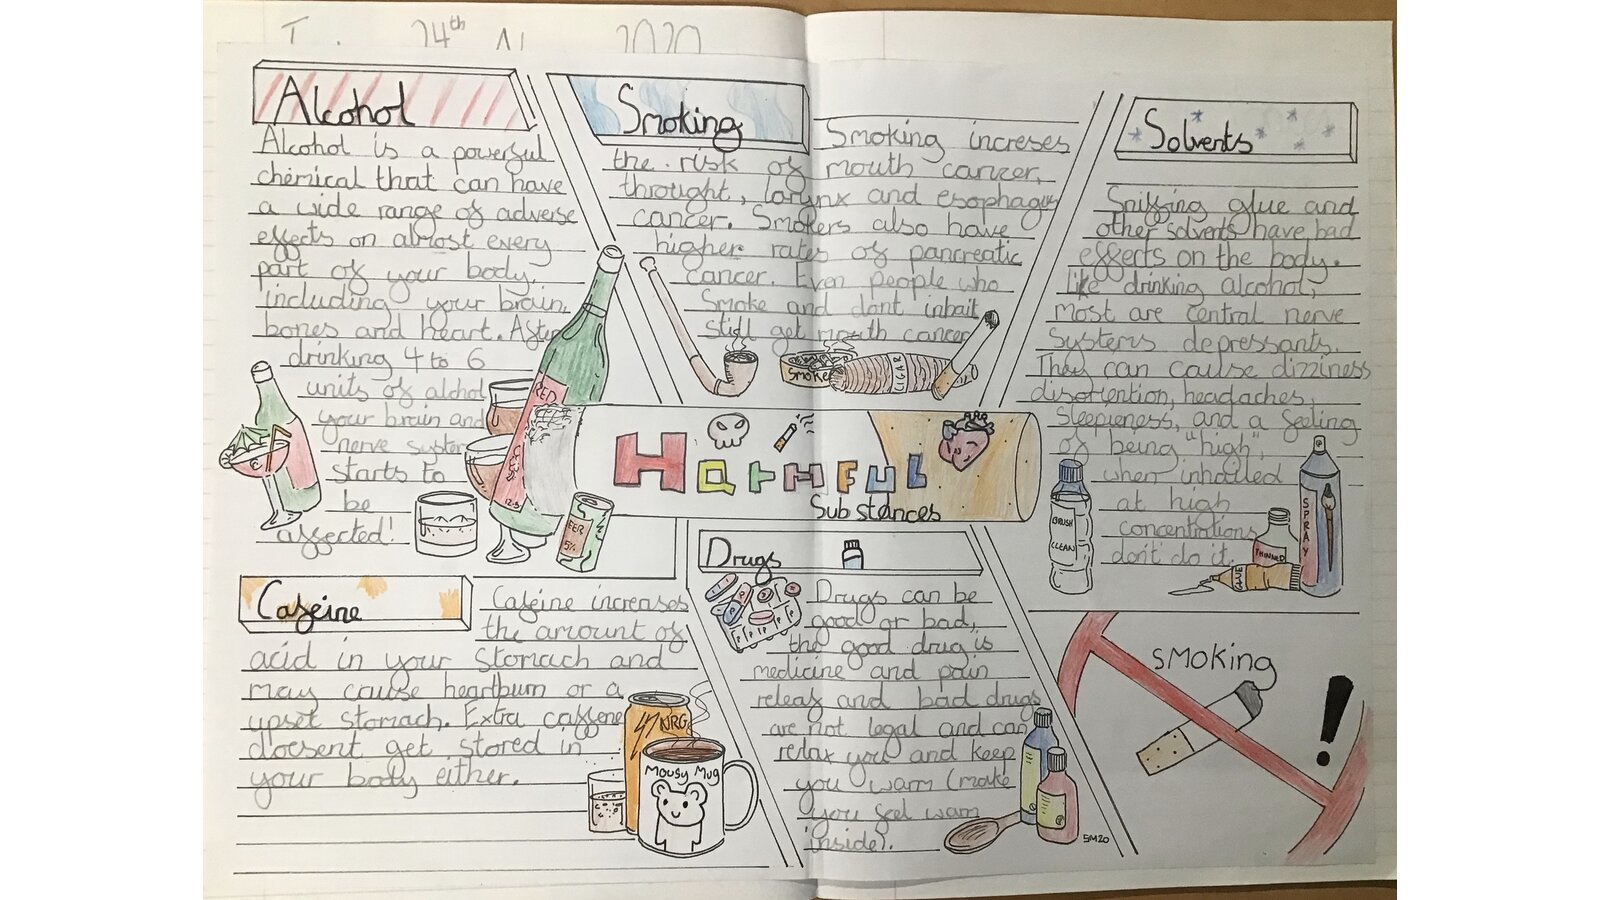 24th 2020
Alcohol
Alcohol is a powerful
chemical that can have
a wide range of adverse
effects on almost every
part of your body,
including your brain,
bones and heart. After
drinking 4 to 6
units of alchol
your brain and
nerve system
starts to
be
affected!
RED
12.5
BEER
5%
Smoking
Smoking increses
the risk of mouth cancer,
throught, larynx and esophagus
cancer. Smokers also have
higher rates of pancreatic
cancer. Even people who
Smoke and dont inhait
still get mouth cancer
Smoke
CIGAR
Solvents
Sniffing glue and
other solvents have bad
effects on the body.
like drinking alcohol,
most are central nerve
systems depressants.
They can cause dizziness
disortention, headaches,
sleepieness, and a feeling
of being "high",
when inhalled
at high
concentrations
don't do it.
BRUSH
CLEAN
THINNER
GLUE
SPRAY
Harmful
Substances
Cafeine
Cafeine increases
the amount of
acid in your stomach and
may cruise heartburn or a
upset stomach. Extra caffene
doesent get stored in
your body either.
NRG
Mousy Mug
Drugs
Drugs can be
good or bad,
the good drug is
medicine and pain
releaf and bad drugs
are not legal and can
relax you and keep
you warm (make
you feel warm
inside).
SM20
SMOKING
!